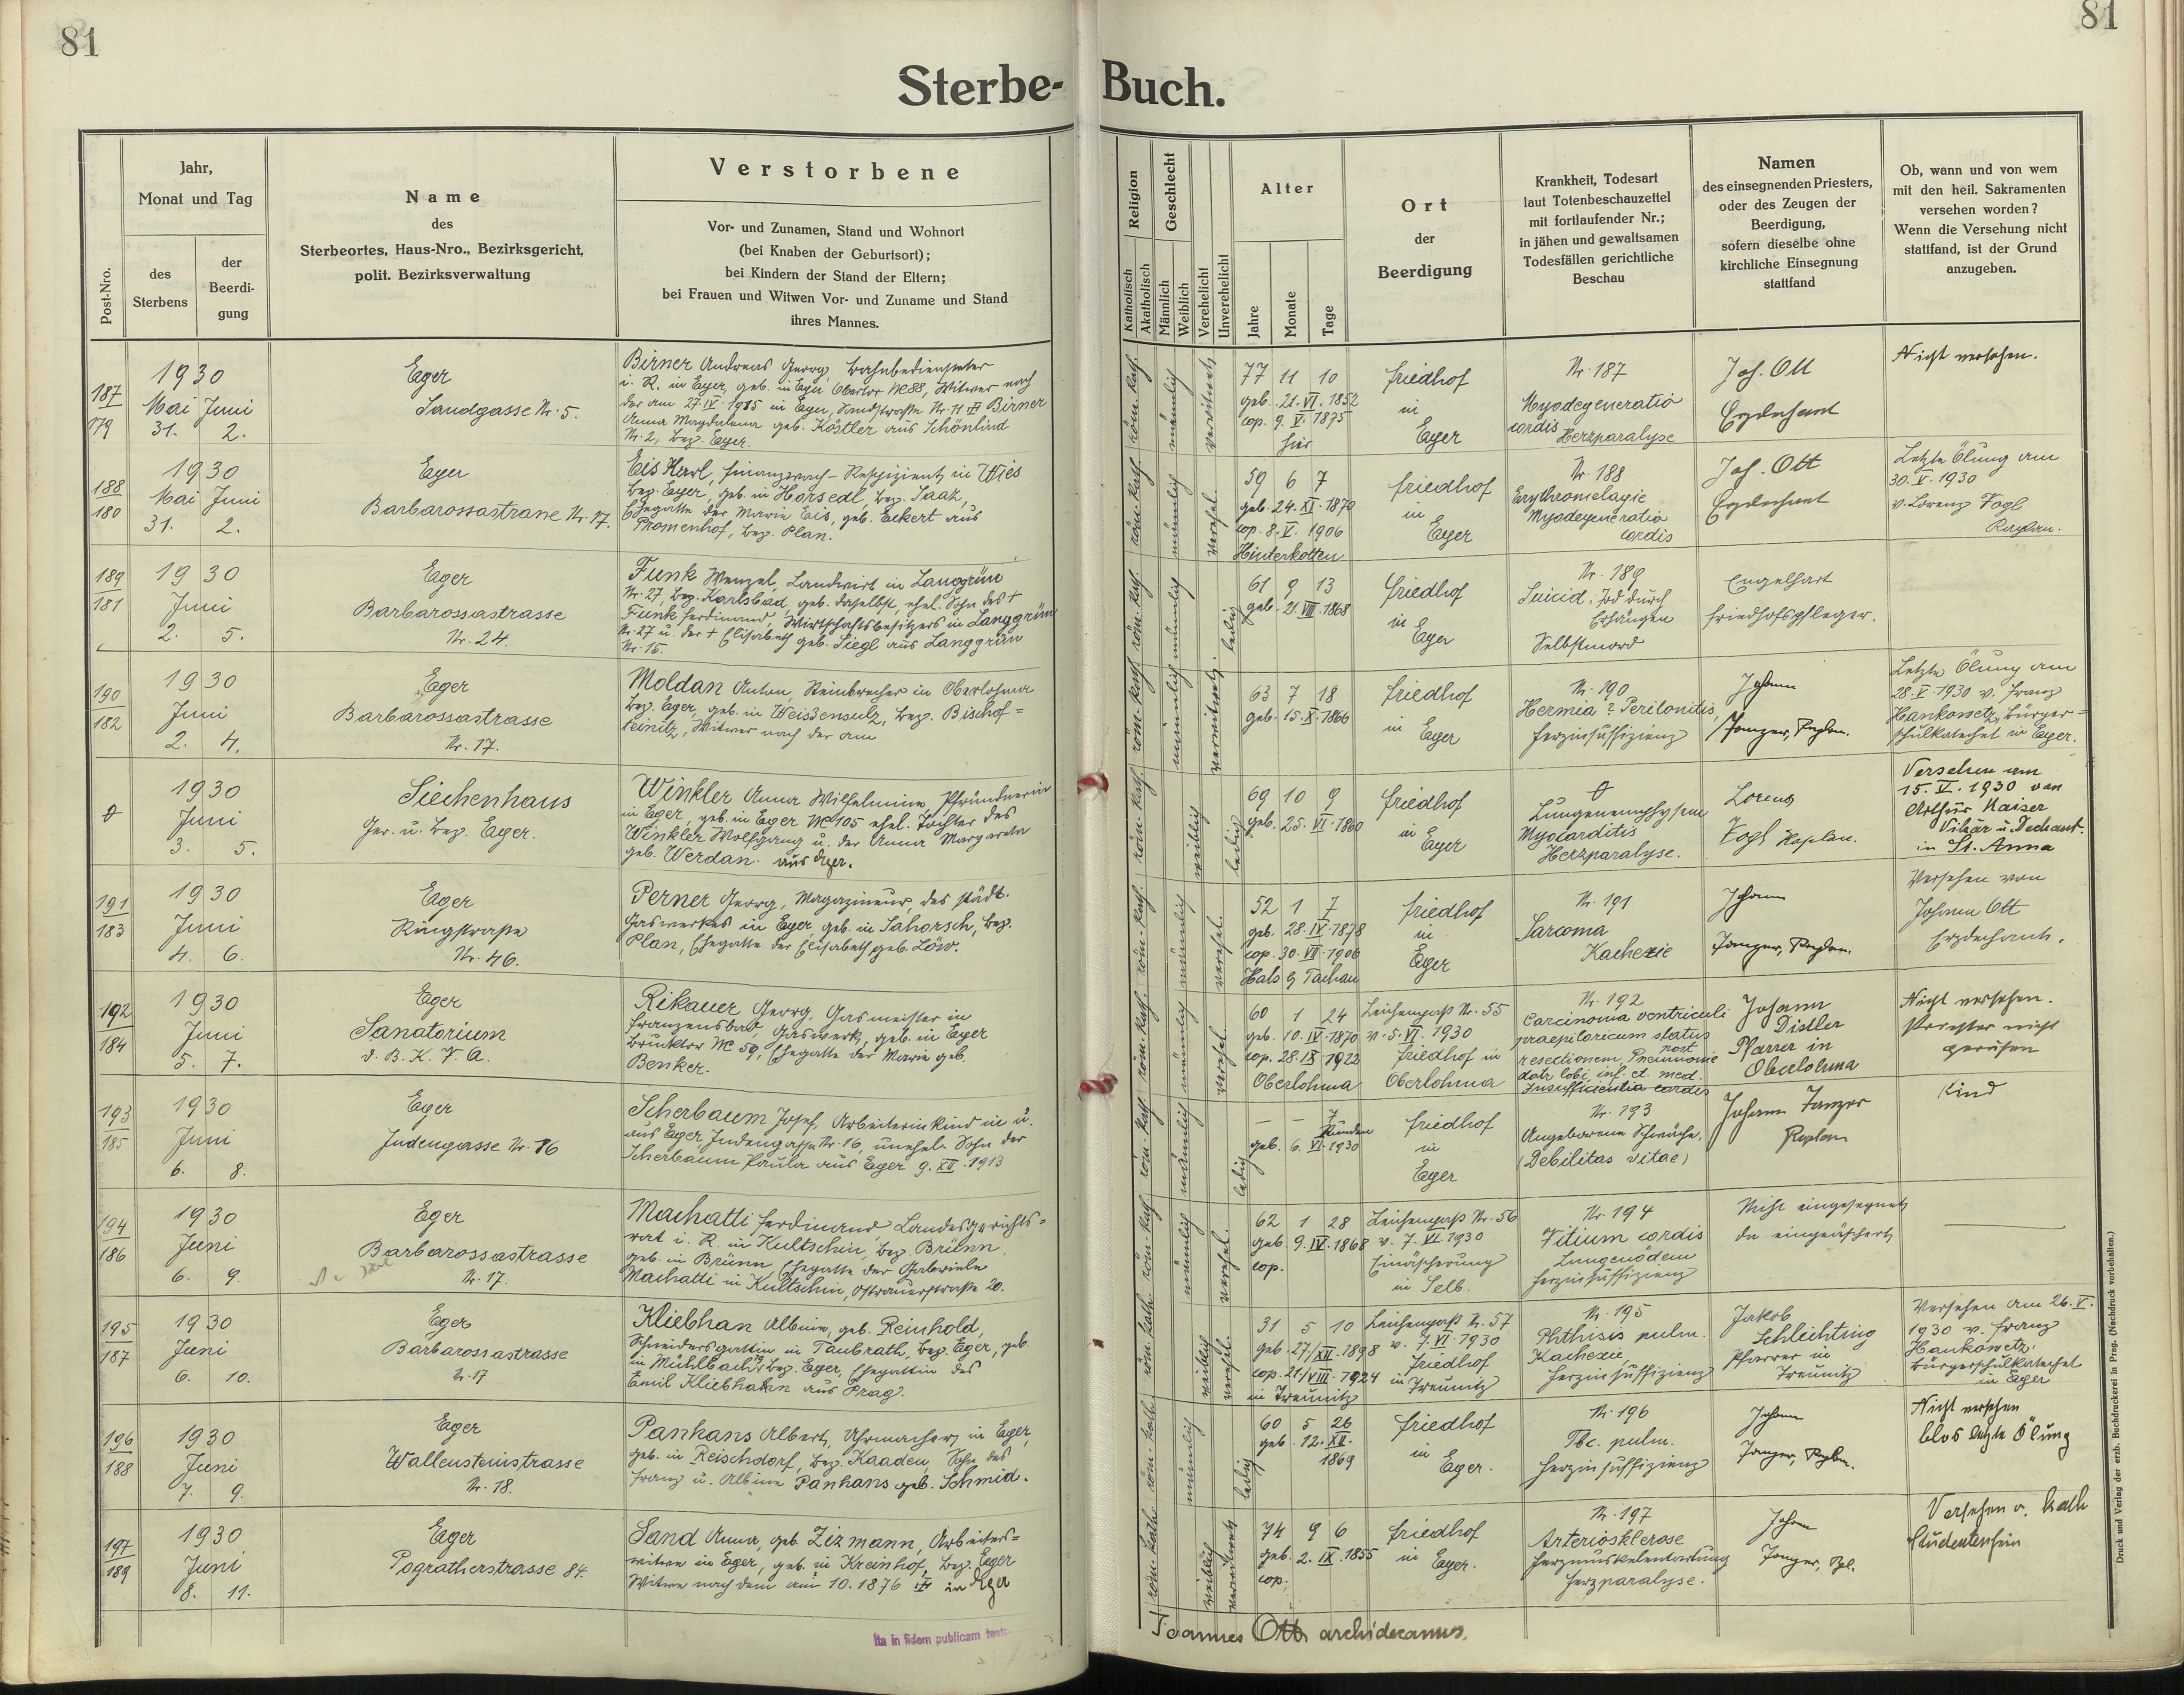 81
81
Sterbe-Buch.
Post-Nro.
Jahr,
Monat und Tag
des
Sterbens
der
Beerdi-
gung
Name
des
Sterbeortes, Haus-Nro., Bezirksgericht,
polit. Bezirksverwaltung
Verstorbene
Vor- und Zunamen, Stand und Wohnort
(bei Knaben der Geburtsort);
bei Kindern der Stand der Eltern;
bei Frauen und Witwen Vor- und Zuname und Stand
ihres Mannes.
Religion
Katholisch
Akatholisch
Geschlecht
Männlich
Weiblich
Verehelicht
Unverehelicht
Alter
Jahre
Monate
Tage
Ort
der
Beerdigung
Krankheit, Todesart
laut Totenbeschauzettel
mit fortlaufender Nr.;
in jähen und gewaltsamen
Todesfällen gerichtliche
Beschau
Namen
des einsegnenden Priesters,
oder des Zeugen der
Beerdigung,
sofern dieselbe ohne
kirchliche Einsegnung
stattfand
Ob, wann und von wem
mit den heil. Sakramenten
versehen worden?
Wenn die Versehung nicht
stattfand, ist der Grund
anzugeben.
187
179
1930
Mai Juni
31. 2.
Eger
Sandgasse Nr. 5.
Birner Andreas Georg, Bahnbediensteter
i. R. in Eger, geb. in Eger Obertor № 88, Witwer nach
der am 27. IV. 1915 in Eger, Sandstraße Nr. 11 Birner
Anna Magdalena geb. Köstler aus Schönlind
Nr. 2, Bez. Eger.
röm. kath.
männlich
verwitwet
77 11 10
geb. 21. VI. 1852
cop. 9. V. 1875
hier
Friedhof
in
Eger
Nr. 187
Myodegeneratio
cordis
Herzparalyse
Joh. Ott
Erzdechant
Nicht versehen.
188
180
1930
Mai Juni
31. 2.
Eger
Barbarossastrasse Nr. 17.
Eis Karl, Finanzwach-Respizient in Wies
Bez. Eger, geb. in Horsedl, Bez. Saaz,
Ehegatte der Marie Eis, geb. Eckert aus
Promenhof, Bez. Plan.
röm. kath.
männlich
verehel.
59 6 7
geb. 24. XI. 1870
cop. 8. V. 1906
Hinterkotten
Friedhof
in
Eger
Nr. 188
Erythromelagie
Myodegeneratio
cordis
Joh. Ott
Erzdechant
Letzte Ölung am
30. V. 1930
v. Lorenz Vogl
Kaplan.
189
181
1930
Juni
2. 5.
Eger
Barbarossastrasse
Nr. 24.
Funk Wenzel, Landwirt in Langgrün
Nr. 27, Bez. Karlsbad, geb. daselbst, ehel. Sohn des †
Funk Ferdinand, Wirtschaftsbesitzers in Langgrün
Nr. 27 u. der † Elisabeth geb. Siegl aus Langgrün
Nr. 15.
röm. kath.
männlich
ledig
61 9 13
geb. 21. VIII. 1868
Friedhof
in
Eger
Nr. 189
Suicid. Tod durch
Erhängen
Selbstmord
Engelhart
Friedhofspfleger.
190
182
1930
Juni
2. 4.
Eger
Barbarossastrasse
Nr. 17.
Moldan Anton, Steinbrecher in Oberlohma
Bez. Eger, geb. in Weissensulz, Bez. Bischof=
teinitz, Witwer nach der am
röm. kath.
männlich
verwitwet
63 7 18
geb. 15. X. 1866
Friedhof
in
Eger
Nr. 190
Hermia ? Peritonitis,
Herzinsuffizienz
Johann
Janger, Kaplan.
Letzte Ölung am
28. V. 1930 v. Franz
Hankowetz, Bürger=
schulkatechet in Eger.
1930
Juni
3. 5.
Siechenhaus
Ger. u. Bez. Eger.
Winkler Anna Wilhelmine, Pfründnerin
in Eger, geb. in Eger № 105 ehel. Tochter des
Winkler Wolfgang u. der Anna Margareta
geb. Werdan. aus Eger.
röm. kath.
weiblich
ledig
69 10 9
geb. 25. VI. 1860
Friedhof
in
Eger
Lungenemphysem
Myocarditis
Herzparalyse.
Lorenz
Vogl Kaplan.
Versehen am
15. V. 1930 von
Arthur Kaiser
Vikar u. Dechant.
in St. Anna
191
183
1930
Juni
4. 6.
Eger
Ringstraße
Nr. 46.
Perner Georg, Magazineur des städt.
Gaswerkes in Eger, geb. in Sahorsch, Bez.
Plan, Ehegatte der Elisabeth geb. Löw.
röm. kath.
männlich
verehel.
52 1 7
geb. 28. IV. 1878
cop. 30. VII. 1906
Hals b. Tachau
Friedhof
in
Eger
Nr. 191
Sarcoma
Kachexie
Johann
Janger, Kaplan.
Versehen von
Johann Ott
Erzdechant.
192
184
1930
Juni
5. 7.
Eger
Sanatorium
d. B. K. V. A.
Rikauer Georg, Gasmeister in
Franzensbad Gaswerk, geb. in Eger
Brucktor № 59, Ehegatte der Marie geb.
Benker.
röm. kath.
männlich
verehel.
60 1 24
geb. 10. IV. 1870
cop. 28. IX. 1922
Oberlohma
Leichenpaß Nr. 55
v. 5. VI. 1930
Friedhof in
Oberlohma
Nr. 192
Carcinoma ventriculi
praepiloricum status
post
resectionem, Pneumonie
dotr lobi inf. et med.
Insufficientia cordis
Johann
Distler
Pfarrer in
Oberlohma
Nicht versehen.
Priester nicht
gerufen
193
185
1930
Juni
6. 8.
Eger
Judengasse Nr. 16
Scherbaum Josef, Arbeiterinkind in u.
aus Eger, Judengasse Nr. 16, unehel. Sohn der
Scherbaum Paula aus Eger 9. XII. 1913
röm. kath.
männlich
ledig
— — 7
Stunden
geb. 6. VI. 1930
Friedhof
in
Eger
Nr. 193
Angeborene Schwäche,
(Debilitas vitae)
Johann Janger
Kaplan
Kind
194
186
1930
Juni
6. 9.
Eger
Barbarossastrasse
Nr. 17.
Machatti Ferdinand, Landesgerichts=
rat i. R. in Kultschin, Bez. Brünn,
geb. in Brünn, Ehegatte der Gabriele
Machatti in Kultschin, Ostrauerstraße 20.
röm. kath.
männlich
verehel.
62 1 28
geb. 9. IV. 1868
cop.
Leichenpaß Nr. 56
v. 7. VI. 1930
Einäscherung
in Selb.
Nr. 194
Vitium cordis
Lungenödem
Herzinsuffizienz
Nicht eingesegnet
da eingeäschert
195
187
1930
Juni
6. 10.
Eger
Barbarossastrasse
Nr. 17
Kliebhan Albine, geb. Reinhold,
Schneidersgattin in Taubrath, Bez. Eger, geb.
in Mühlbach, Bez. Eger, Ehegattin des
Emil Kliebhahn aus Prag.
röm. kath.
weiblich
verehel.
31 5 10
geb. 27./XII. 1898
cop. 21./VIII. 1924
in Treunitz
Leichenpaß Nr. 57
v. 7. VI. 1930
Friedhof
in Treunitz
Nr. 195
Phthisis pulm.
Kachexie,
Herzinsuffizienz
Jakob
Schlechting
Pfarrer in
Treunitz
Versehen am 26. V.
1930 v. Franz
Hankowetz,
Bürgerschulkatechet
in Eger
196
188
1930
Juni
7. 9.
Eger
Wallensteinstrasse
Nr. 18.
Panhans Albert, Uhrmacher in Eger,
geb. in Reischdorf, Bez. Kaaden, Sohn des
Franz u. Albine Panhans geb. Schmid.
röm. kath.
männlich
ledig
60 5 26
geb. 12. XII.
1869
Friedhof
in
Eger.
Nr. 196
Tbc. pulm.
Herzinsuffizienz
Johann
Janger, Kaplan.
Nicht versehen
blos letzte Ölung
197
189
1930
Juni
8. 11.
Eger
Pogratherstrasse 84.
Sand Anna, geb. Zizmann, Arbeiters=
witwe in Eger, geb. in Kreinhof, Bez. Eger
Witwe nach dem am 10. 1876 in Eger
röm. kath.
weiblich
verwitwet
74 9 6
geb. 2. IX. 1855
cop.
Friedhof
in Eger.
Nr. 197
Arteriosklerose
Herzmuskelentartung
Herzparalyse.
Johann
Janger, Kpl.
Versehen v. Kath
Studentenheim
Ita in fidem publicam
Joannes Ott archidecanus.
Druck und Verlag der erzb. Buchdruckerei in Prag. (Nachdruck vorbehalten.)